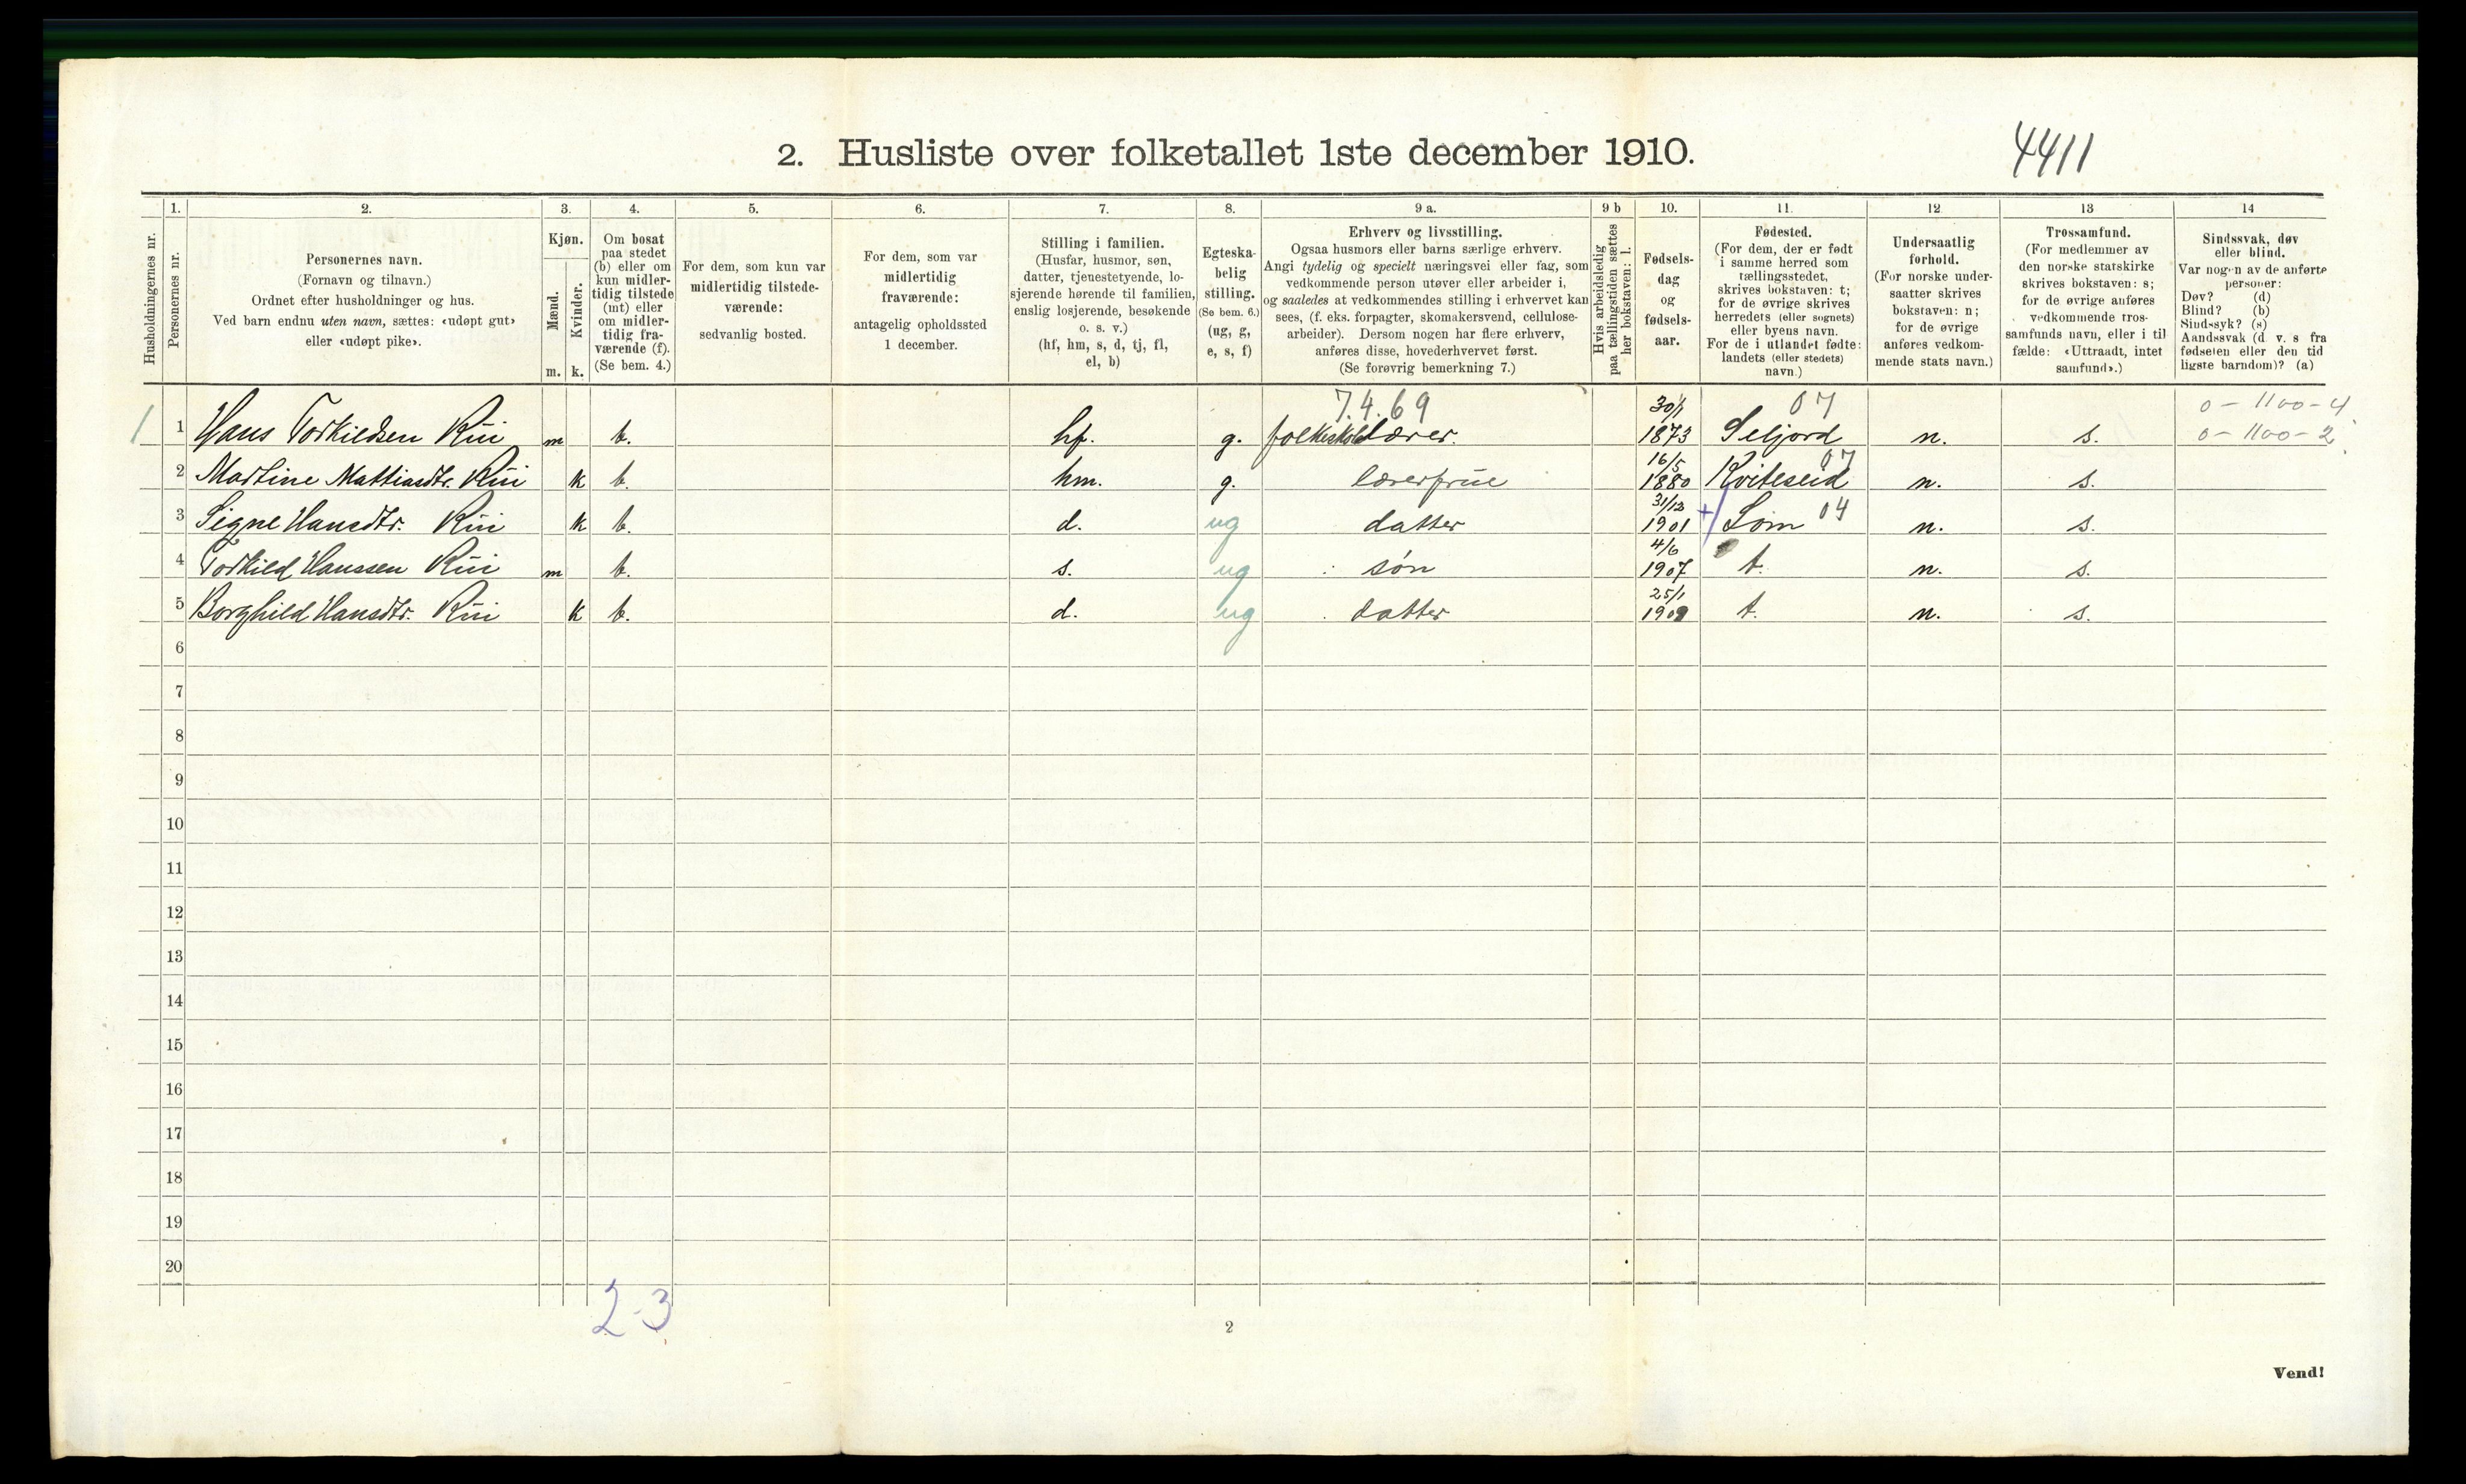 2. Husliste over folketallet 1ste december 1910.
4411
1.
2.
3.
4.
5.
6.
7.
8.
9 a.
9 b
10.
11.
12
13
14
Husholdningernes nr.
Personernes nr.
Personernes navn.
(Fornavn og tilnavn.)
Ordnet efter husholdninger og hus.
Ved barn endnu uten navn, sættes: «udøpt gut»
eller «udøpt pike».
Kjøn.
Mænd.
Kvinder.
m. k.
Om bosat
paa stedet
(b) eller om
kun midler-
tidig tilstede
(mt) eller
om midler-
tidig fra-
værende (f).
(Se bem. 4.)
For dem, som kun var
midlertidig tilstede-
værende:
sedvanlig bosted.
For dem, som var
midlertidig
fraværende:
antagelig opholdssted
1 december.
Stilling i familien.
(Husfar, husmor, søn,
datter, tjenestetyende, lo-
sjerende hørende til familien,
enslig losjerende, besøkende
o. s. v.)
(hf, hm, s, d, tj, fl,
el, b)
Egteska-
belig
stilling.
(Se bem. 6.)
(ug, g,
e, s, f)
Erhverv og livsstilling.
Ogsaa husmors eller barns særlige erhverv.
Angi tydelig og specielt næringsvei eller fag, som
vedkommende person utøver eller arbeider i,
og saaledes at vedkommendes stilling i erhvervet kan
sees, (f. eks. forpagter, skomakersvend, cellulose-
arbeider). Dersom nogen har flere erhverv,
anføres disse, hovederhvervet først.
(Se forøvrig bemerkning 7.)
Hvis arbeidsledig
paa tællingstiden sættes
her bokstaven: l.
Fødsels-
dag
og
fødsels-
aar.
Fødested.
(For dem, der er født
i samme herred som
tællingsstedet,
skrives bokstaven: t;
for de øvrige skrives
herredets (eller sognets)
eller byens navn.
For de i utlandet fødte:
landets (eller stedets)
navn.)
Undersaatlig
forhold.
(For norske under-
saatter skrives
bokstaven: n;
for de øvrige
anføres vedkom-
mende stats navn.)
Trossamfund.
(For medlemmer av
den norske statskirke
skrives bokstaven: s;
for de øvrige anføres
vedkommende tros-
samfunds navn, eller i til
fælde: «Uttraadt, intet
samfund».)
Sindssvak, døv
eller blind.
Var nogen av de anførte
personer:
Døv? (d)
Blind? (b)
Sindssyk? (s)
Aandssvak (d. v. s fra
fødselen eller den tid
ligste barndom)? (a)
7.4.69 30/1 07 0 - 1100 - 4
1 1 Hans Torkildsen Rui m b. hf. g. folkeskolelærer. 1873 Seljord n. s. 0 - 1100 - 2
16/5 07
2 Martine Mattiasdtr. Rui k b. hm. g. lærerfrue 1880 Kviteseid n. s.
31/12
3 Signe Hansdtr. Rui k b. d. ug datter 1901 + Lom 04 n. s.
4/6
4 Torkild Hanssen Rui m b. s. ug søn 1907 t. n. s.
25/1
5 Borghild Hansdtr. Rui k b. d. ug datter 1909 t. n. s.
6
7
8
9
10
11
12
13
14
15
16
17
18
19
20
2-3
2
Vend!